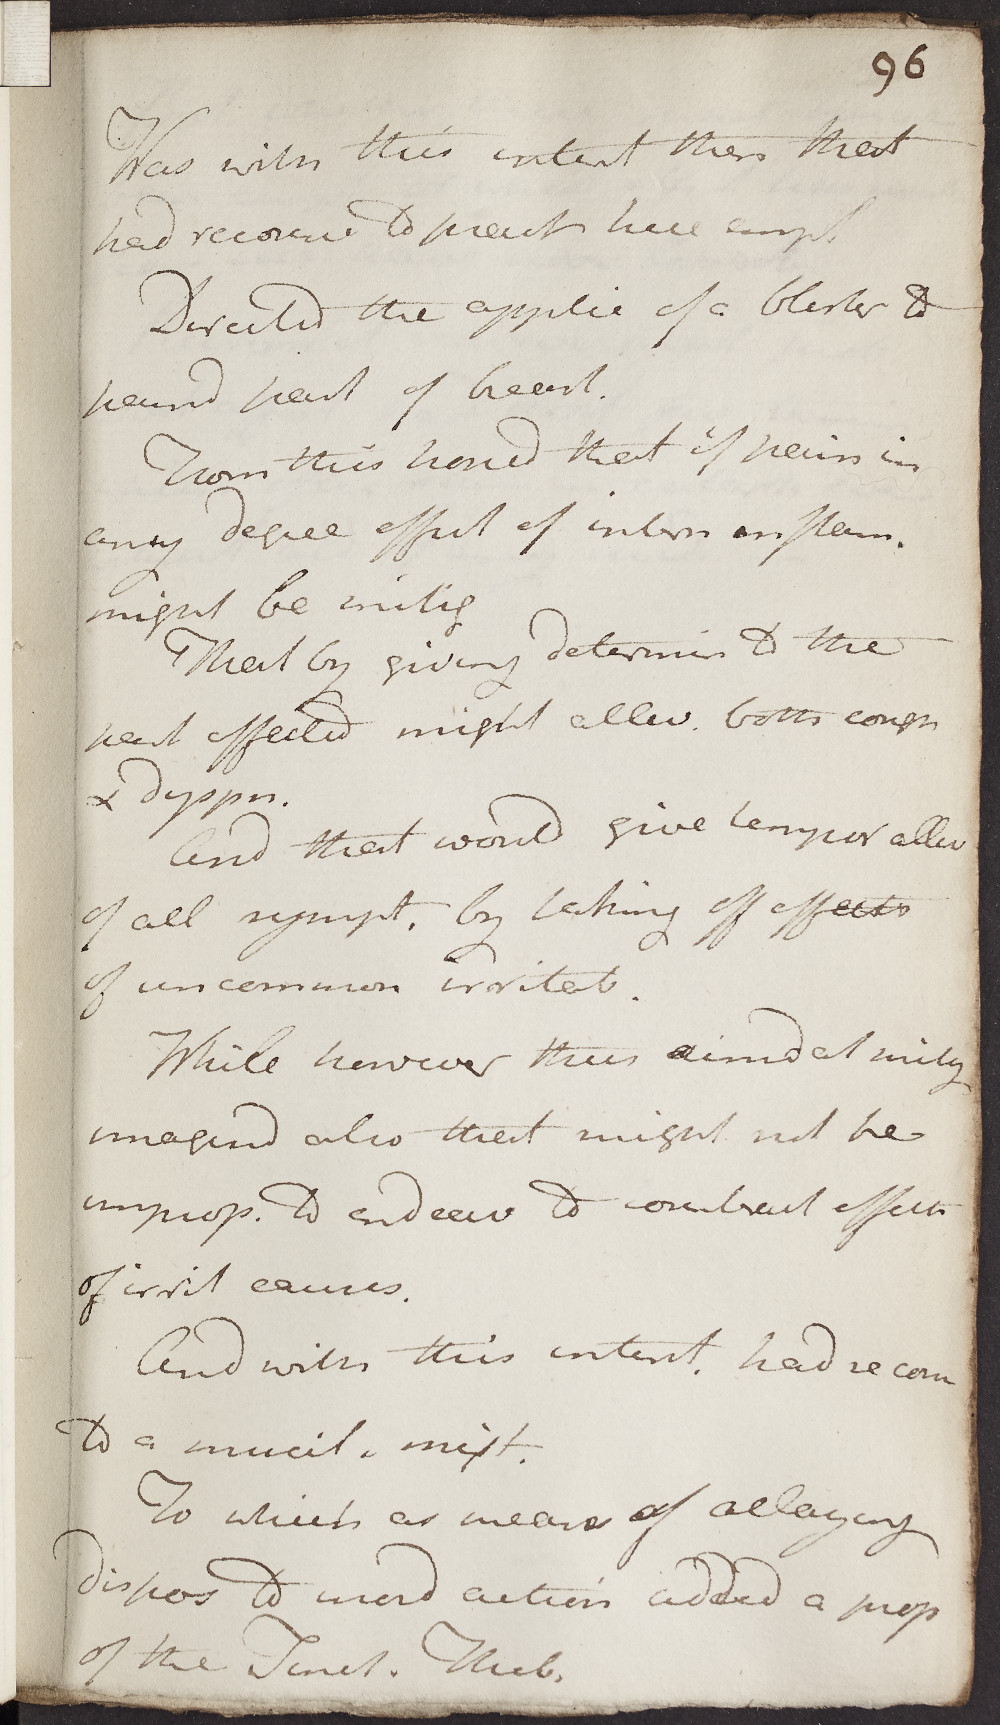 96
Was with this intent then that
had recourse to pract here empl.
Directed the applic of a blister to
paind part of breast.
From this hoped that if pain in
any degree effect of intern inflam.
might be mitig
That by giving determin to the
part affected might allev. both cough
& dyspn.
And that would give tempor allev
of all sympt. by taking off effects
of uncommon irritat.
While however thus aimd at mitig
imagind also that might not be
improp. to endeav to counteract effects
of irrit causes.
And with this intent. had recour
to a mucil. mixt.
To which as means of allaying
dispos to inord action added a prop
of the Tinct. Theb.